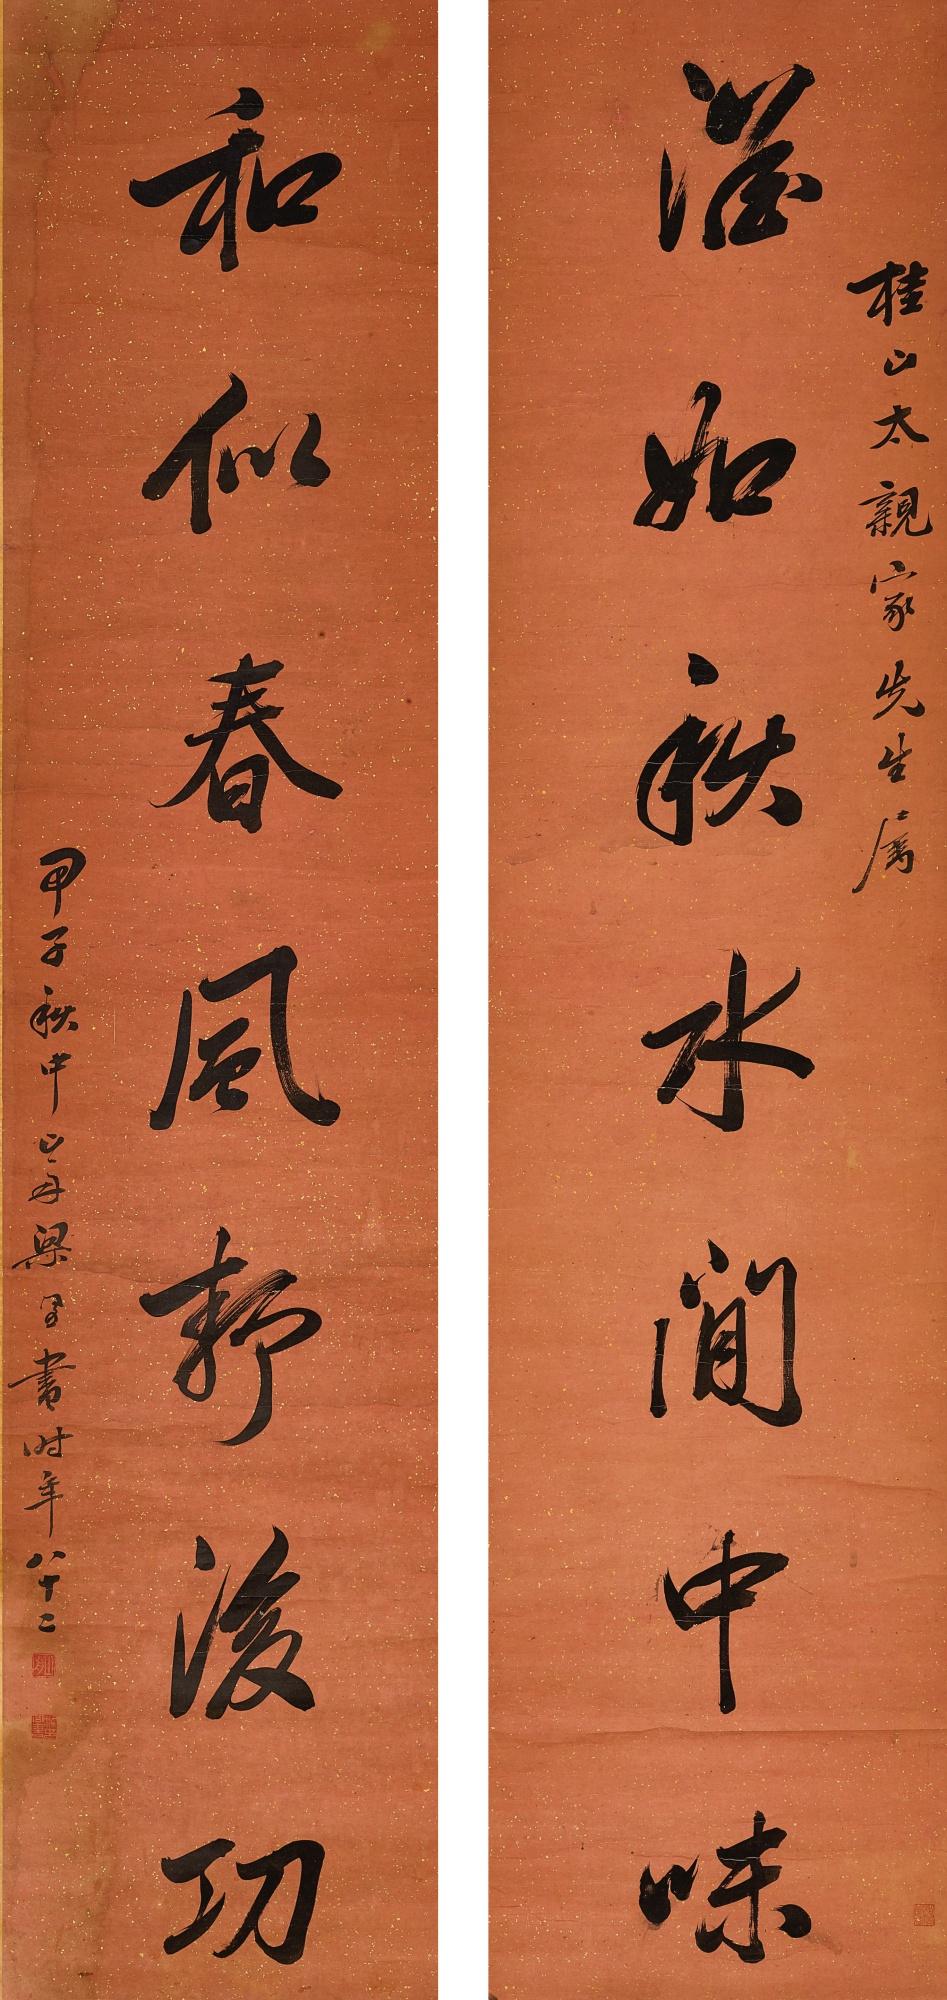 桂山太親家先生属
澹如秋水閒中味
和似春風靜後功
甲子秋中山舟梁同書时年八十二